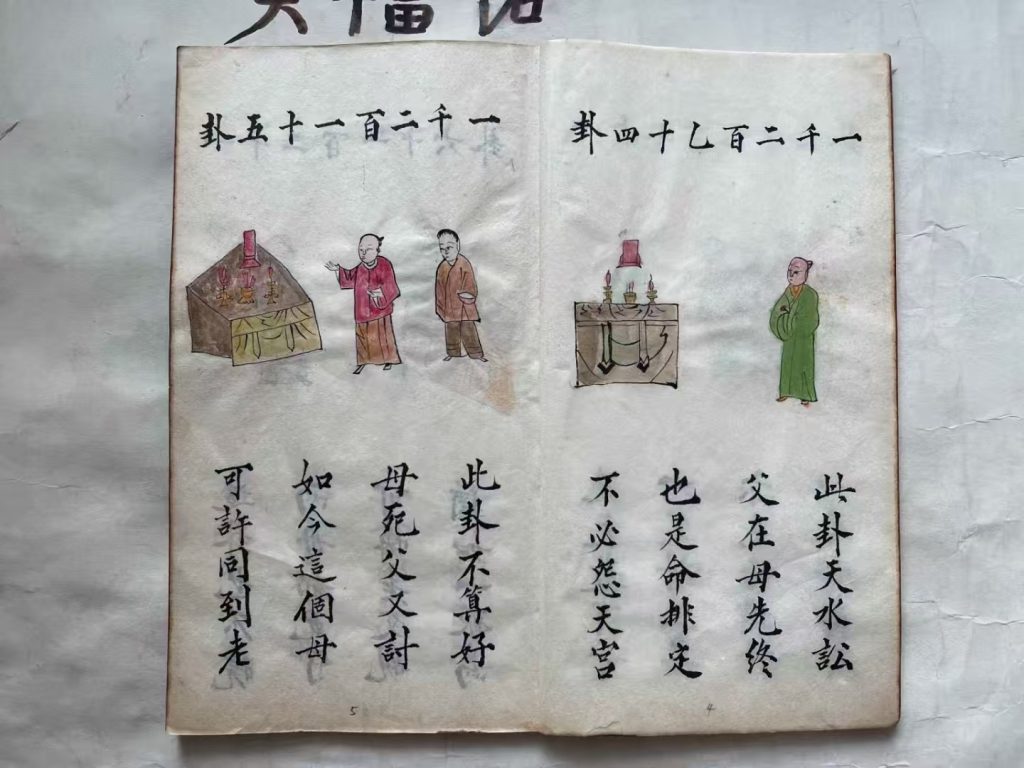 一千二百乙十四卦
此卦天水訟
父在母先終
也是命排定
不必怨天宫
4
一千二百一十五卦
此卦不算好
母死父又討
如今這個母
可許同到老
5